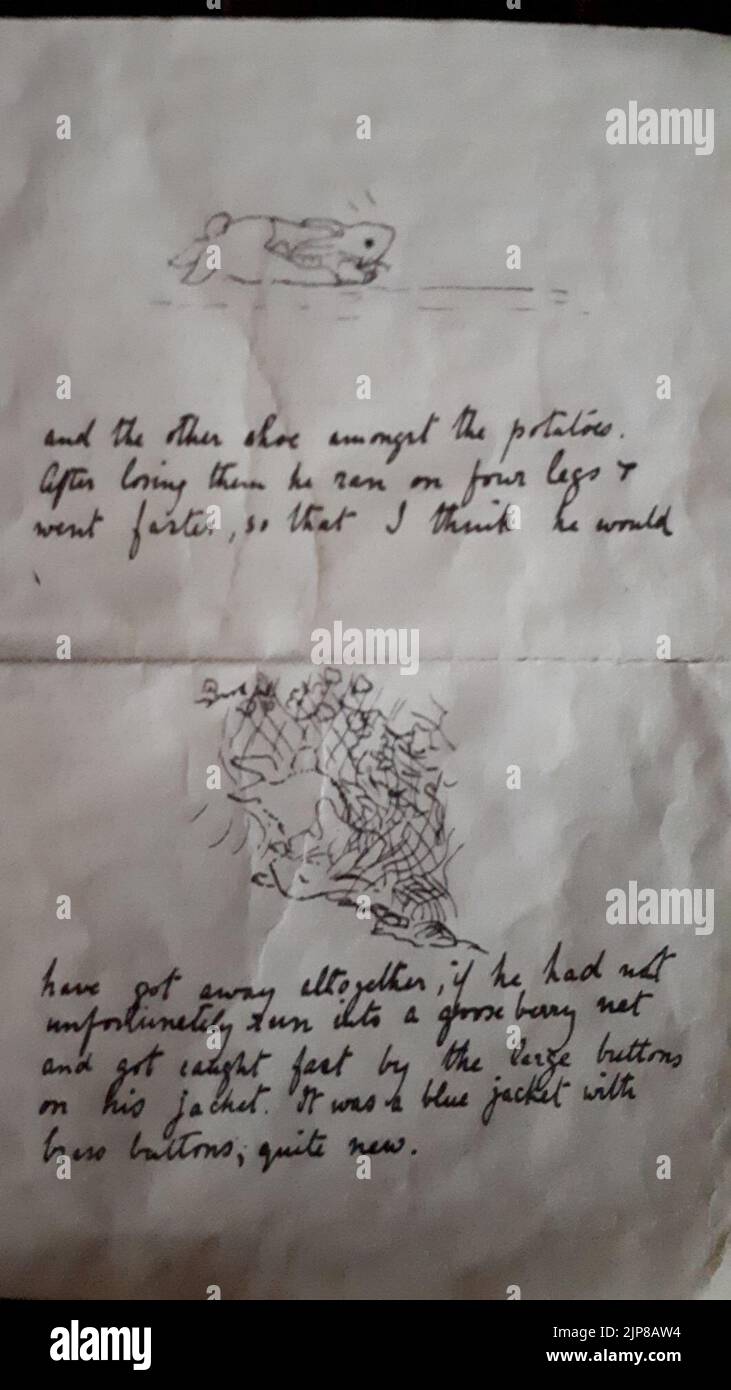 and the other shoe amongst the potatoes.
After losing them he ran on four legs &
went faster, so that I think he would
have got away altogether, if he had not
unfortunately run into a gooseberry net
and got caught fast by the large buttons
on his jacket. It was a blue jacket with
brass buttons; quite new.
alamy
Image ID: 2JP8AW4
www.alamy.com